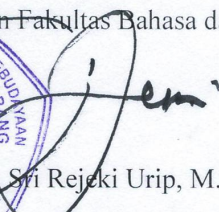 n Fakultas Bahasa d
EBUDAYAAN
RANG
Sri Rejeki Urip, M.